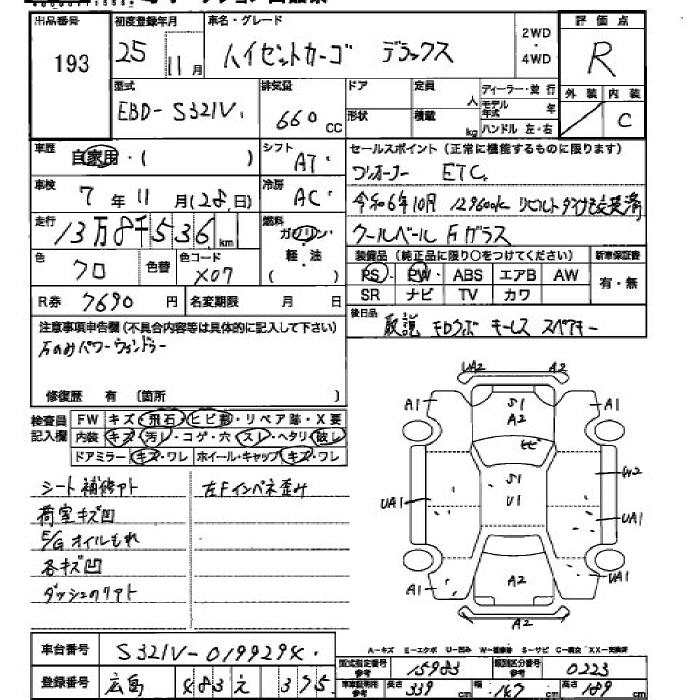 出品番号 初度登録年月 車名・グレード 2WD・4WD 評価点
193 25年11月 ハイゼットカーゴ デラックス R
型式 排気量 ドア 定員 人 ディーラー・並行 外装 内装
EBD-S321V 660cc 形状 積載 kg モデル年式 年 ハンドル 左・右 C
車歴 自家用・( ) シフト AT セールスポイント(正常に機能するものに限ります)
ワンオーナー ETC
車検 7年11月(28日) 冷房 AC 令和6年10月 129600k リビルト 交換済
走行 13万8千536km 燃料 ガソリン・軽・油 ( ) クールベール Fガラス
色 クロ 色替 色コード X07 装備品(純正品に限り○をつけてください) 新車保証書
PS PW ABS エアB AW 有・無
R券 7690円 名変期限 月 日 SR ナビ TV カワ
注意事項申告欄(不具合内容等は具体的に記入して下さい) 後日品 取説 キーレス スペアキー
修復歴 有 (箇所 )
検査員記入欄 FW キズ・飛石・ヒビ割・リペア跡・X要
内装 キズ・汚レ・コゲ・穴・スレ・ヘタリ・破レ
ドアミラー キズ・ワレ ホイール・キャップ キズ・ワレ
シート補修アト 左Fインパネ歪み
荷室キズ凹
E/Gオイルもれ
各キズ凹
ダッシュのリアト
UA2 A2
A1 S1 A1
A2
W2
S1
UA1 U1 UA1
A1 A2 UA1
A2
車台番号 S321V-0199294
A-キズ E-エクボ U-凹み S-サビ XX-交換済
登録番号 広島 483 え 375
型式指定番号 15983 類別区分番号 0223
長さ 339cm 幅 147cm 高さ 189cm